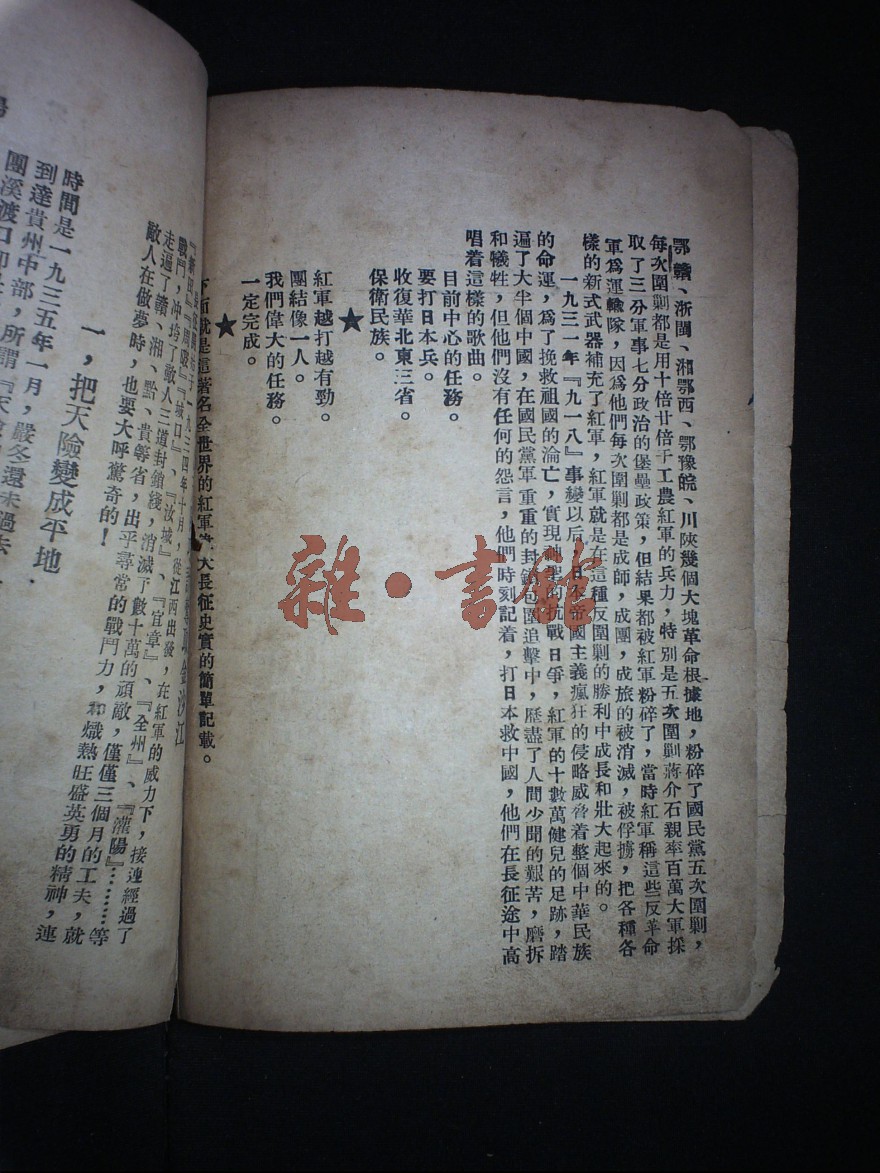 鄂贛、浙閩、湘鄂西、鄂豫皖、川陝幾個大塊革命根據地，粉碎了國民黨五次圍剿，
每次圍剿都是用十倍廿倍于工農紅軍的兵力，特別是五次圍剿蔣介石親率百萬大軍採
取了三分軍事七分政治的堡壘政策，但結果都被紅軍粉碎了，當時紅軍稱這些反革命
軍爲運輸隊，因爲他們每次圍剿都是成師，成團，成旅的被消滅，被俘擄，把各種各
樣的新式武器補充了紅軍，紅軍就是在這種反圍剿的勝利中成長和壯大起來的。
一九三一年『九一八』事變以后，日本帝國主義瘋狂的侵略威脅着整個中華民族
的命運，爲了挽救祖國的淪亡，實現神聖的抗戰日爭，紅軍的十數萬健兒的足跡，踏
遍了大半個中國，在國民黨軍重重的封鎖包圍追擊中，歷盡了人間少聞的艱苦，磨折
和犧牲，但他們沒有任何的怨言，他們時刻記着，打日本救中國，他們在長征途中高
唱着這樣的歌曲。
目前中心的任務。
要打日本兵。
收復華北東三省。
保衛民族。
★
紅軍越打越有勁。
團結像一人。
我們偉大的任務。
一定完成。
★
下面就是這著名全世界的紅軍 大長征史實的簡單記載。
取金沙江
一九三四年十月，從江西出發，在紅軍的威力下，接連經過了
戰鬥，冲垮了敵人三道封鎖綫，消滅了數十萬的頑敵，僅僅三個月的工夫，就
走遍了贛、湘、黔、貴等省，出乎尋常的戰鬥力，和熾熱旺盛英勇的精神，連
敵人在做夢時，也要大呼驚奇的！
一，把天險變成平地
時間是一九三五年一月，嚴冬還未過去，
到達貴州中部，所謂『天
團溪渡口
雜·書館